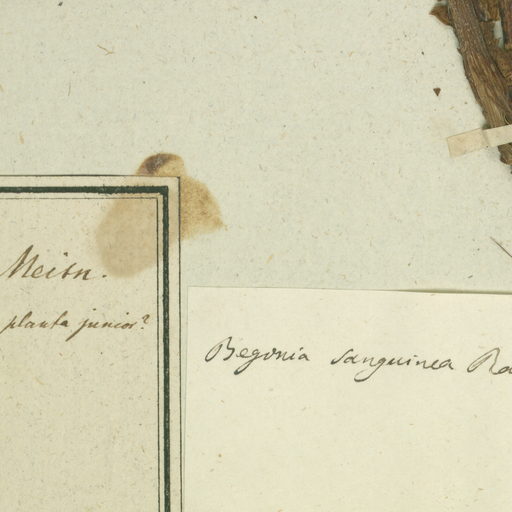 Meisn.
planta junior?
Begonia sanguinea Ra